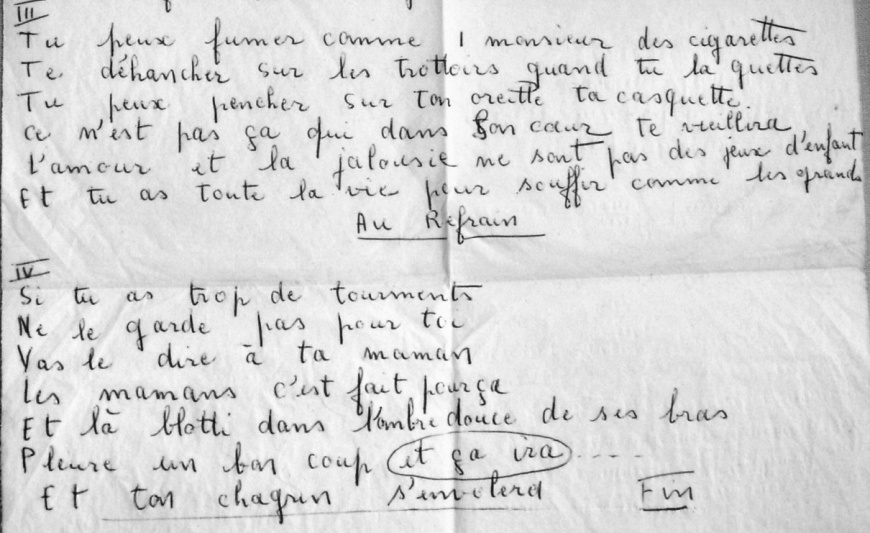 III
Tu peux fumer comme 1 monsieur des cigarettes
Te déhancher sur les trottoirs quand tu la guettes
Tu peux pencher sur ton oreille ta casquette.
Ce n'est pas ça qui dans ton cœur te vieillira
L'amour et la jalousie ne sont pas des jeux d'enfant
Et tu as toute la vie pour souffir comme les grands
Au Refrain
IV
Si tu as trop de tourments
Ne le garde pas pour toi
Vas le dire à ta maman
Les mamans c'est fait pour ça
Et là blotti dans l'ombre douce de ses bras
Pleure un bon coup et ça ira .....
Et ton chagrin s'envolera Fin